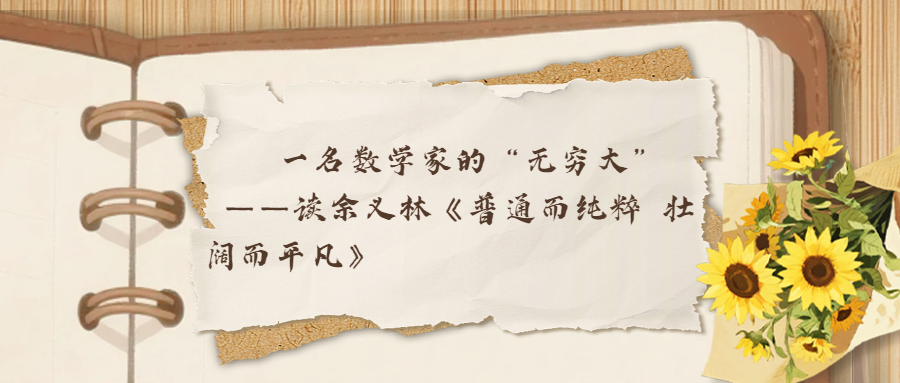 一名数学家的“无穷大”
——读余义林《普通而纯粹 壮
阔而平凡》